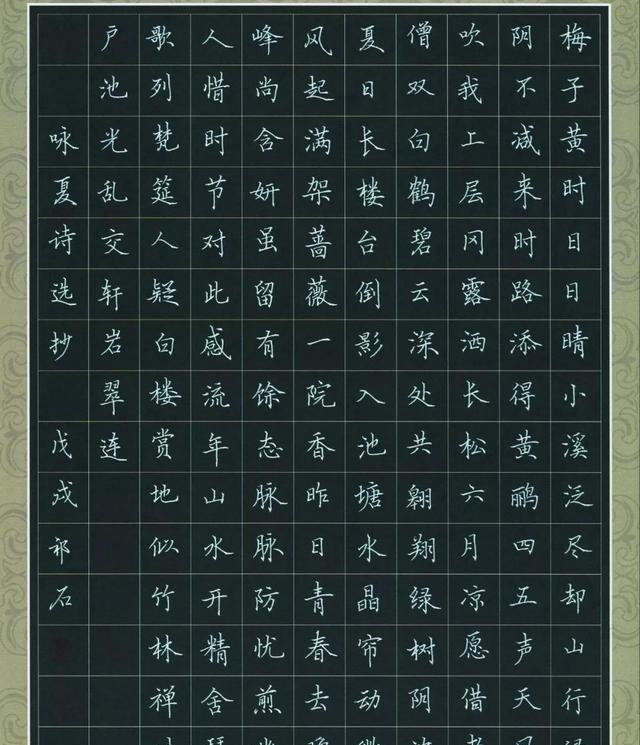 梅子黄时日日晴小溪泛尽却山行
阴不减来时路添得黄鹂四五声天
吹我上层冈露洒长松六月凉愿借
僧双白鹤碧云深处共翱翔绿树阴
夏日长楼台倒影入池塘水晶帘动
风起满架蔷薇一院香昨日青春去
峰尚含妍虽留有馀态脉脉防忧煎
人惜时节对此感流年山水开精舍
歌列梵筵人疑白楼赏地似竹林禅
户池光乱交轩岩翠连
咏夏诗选抄 戊戌祁石